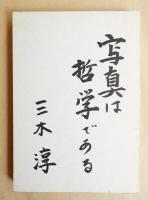 写真は
哲学である
三木淳